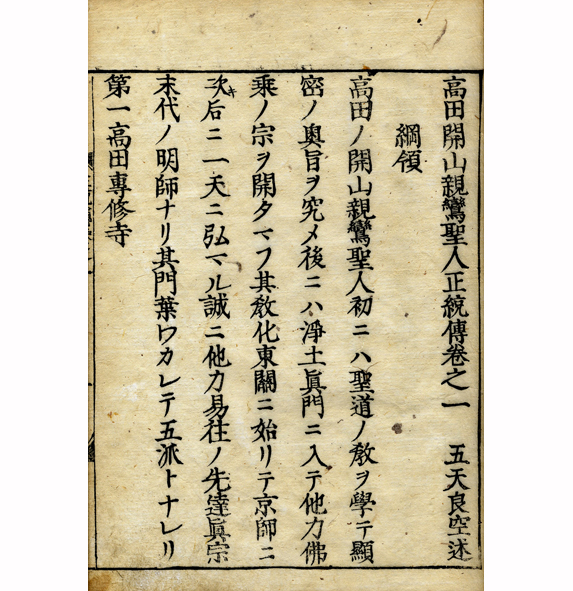 高田開山親鸞聖人正統傳卷之一　五天良空述
綱領
高田ノ開山親鸞聖人初ニハ聖道ノ敎ヲ學テ顯
密ノ奧旨ヲ究メ後ニハ淨土眞門ニ入テ他力佛
乘ノ宗ヲ開タマフ其敎化東關ニ始リテ京師ニ
次キ后ニ一天ニ弘マル誠ニ他力易往ノ先達眞宗
末代ノ明師ナリ其門葉ワカレテ五派トナレリ
第一高田專修寺